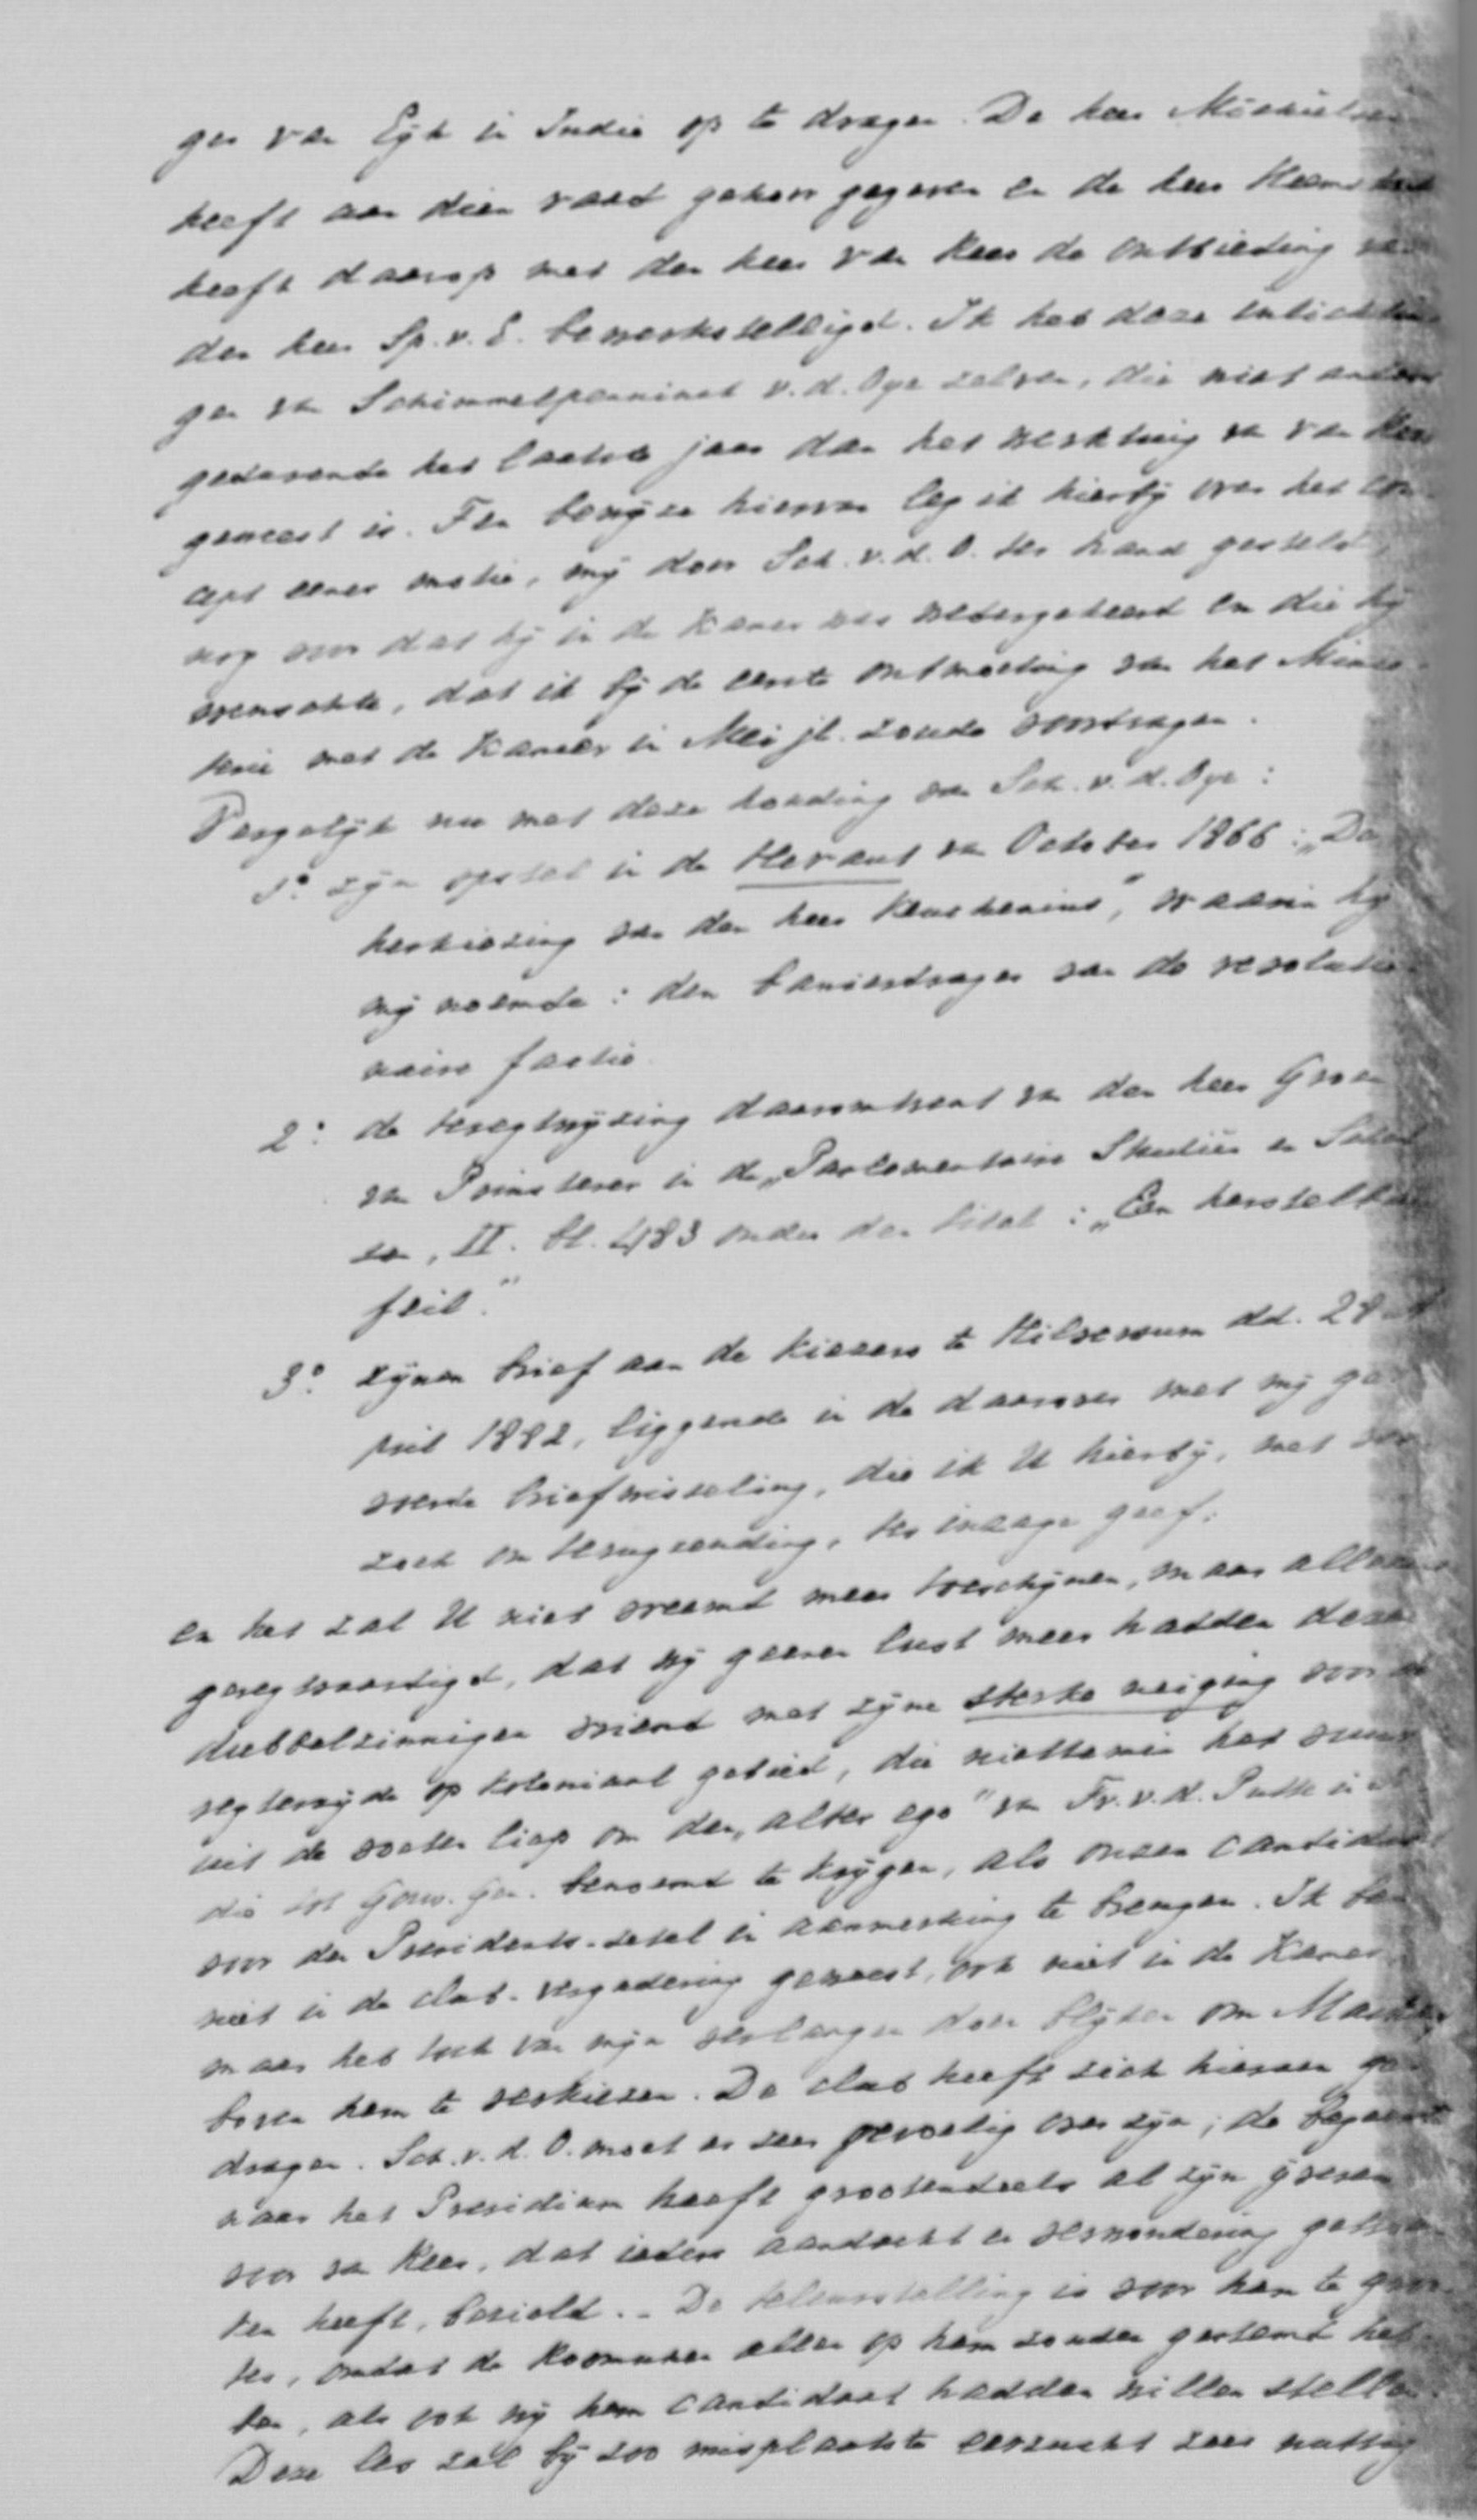 ger van Eyk in Indie op te dragen. De heer Michielsen
heeft aan dien raad gehoor gegeven en de heer Heemskerk
heeft daarop met den heer van Rees de ontbieding van
den heer Sp. v. E. bewerkstelligd. Ik heb deze inlichtin-
gen van Schimmelpenninck v. d. Oye zelven, die niet anders
gedurende het laatste jaar dan het werktuig van van Rees
geweest is. Ten bewijze hiervan leg ik hierbij over het con-
cept eener motie, mij door Sch. v. d. O. ter hand gesteld,
nog voor dat hij in de Kamer was wedergekeerd en die hij
wenschte, dat ik bij de eerste ontmoeting van het Minis-
terie met de Kamer in Mei jl. zoude voordragen.
Vergelijk nu met deze houding van Sch. v. d. Oye:
1º. zijn opstel in de Heraut van October 1866: „De
herkiezing van den heer Keuchenius", waarin hij
mij noemde: den banierdrager van de revolutio-
naire factie.
2º. de teregtwijzing daaromtrent van den heer Groen
van Prinsterer in de „Parlementaire Studien en Schet-
sen, II. bl. 483 onder den titel: „Een herstelbare
feil."
3º. zijnen brief aan de kiezers te Hilversum dd. 28 A-
pril 1882, liggende in de daarover met mij ge-
voerde briefwisseling, die ik U hierbij, met ver-
zoek om terugzending, ter inzage geef;
en het zal U niet vreemd meer toeschijnen, maar alleszins
geregtvaardigd, dat wij geenen lust meer hadden dezen
dubbelzinnigen vriend met zijne sterke neiging voor de
regterzijde op koloniaal gebied, die niettemin het vuur
uit de voeten liep om den „alter ego" van Fr. v. d. Putte in In-
die tot Gouv. Gen. benoemd te krijgen, als onzen candidaat
voor den Presidents-zetel in aanmerking te brengen. Ik ben
niet in de club-vergadering geweest, ook niet in de Kamer,
maar heb toch van mijn verlangen doen blijken om Mackay
boven hem te verkiezen. De club heeft zich hieraan ge-
dragen. Sch. v. d. O. moet er zeer gevoelig over zijn; de begeerte
naar het Presidium heeft grootendeels al zijn ijveren
voor van Rees, dat ieders aandacht en verwondering getrok-
ken heeft, bezield. – De teleurstelling is voor hem te groo-
ter, omdat de Roomschen allen op hem zouden gestemd heb-
ben, als ook wij hem candidaat hadden willen stellen.
Deze les zal bij zoo misplaatste eerzucht zeer nuttig